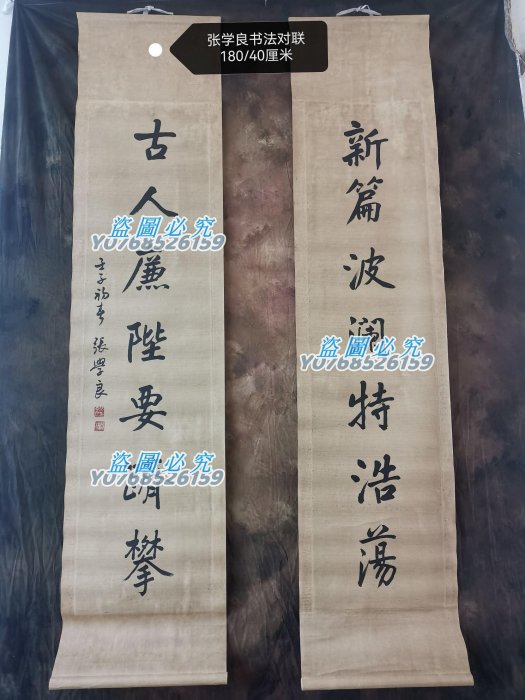 张学良书法对联
180/40厘米
新篇波澜特浩蕩
古人廉陛要躋攀
壬子初春 張學良
盗圖必究
YU768526159
盗圖必究
YU768526159
盗圖必究
YU768526159